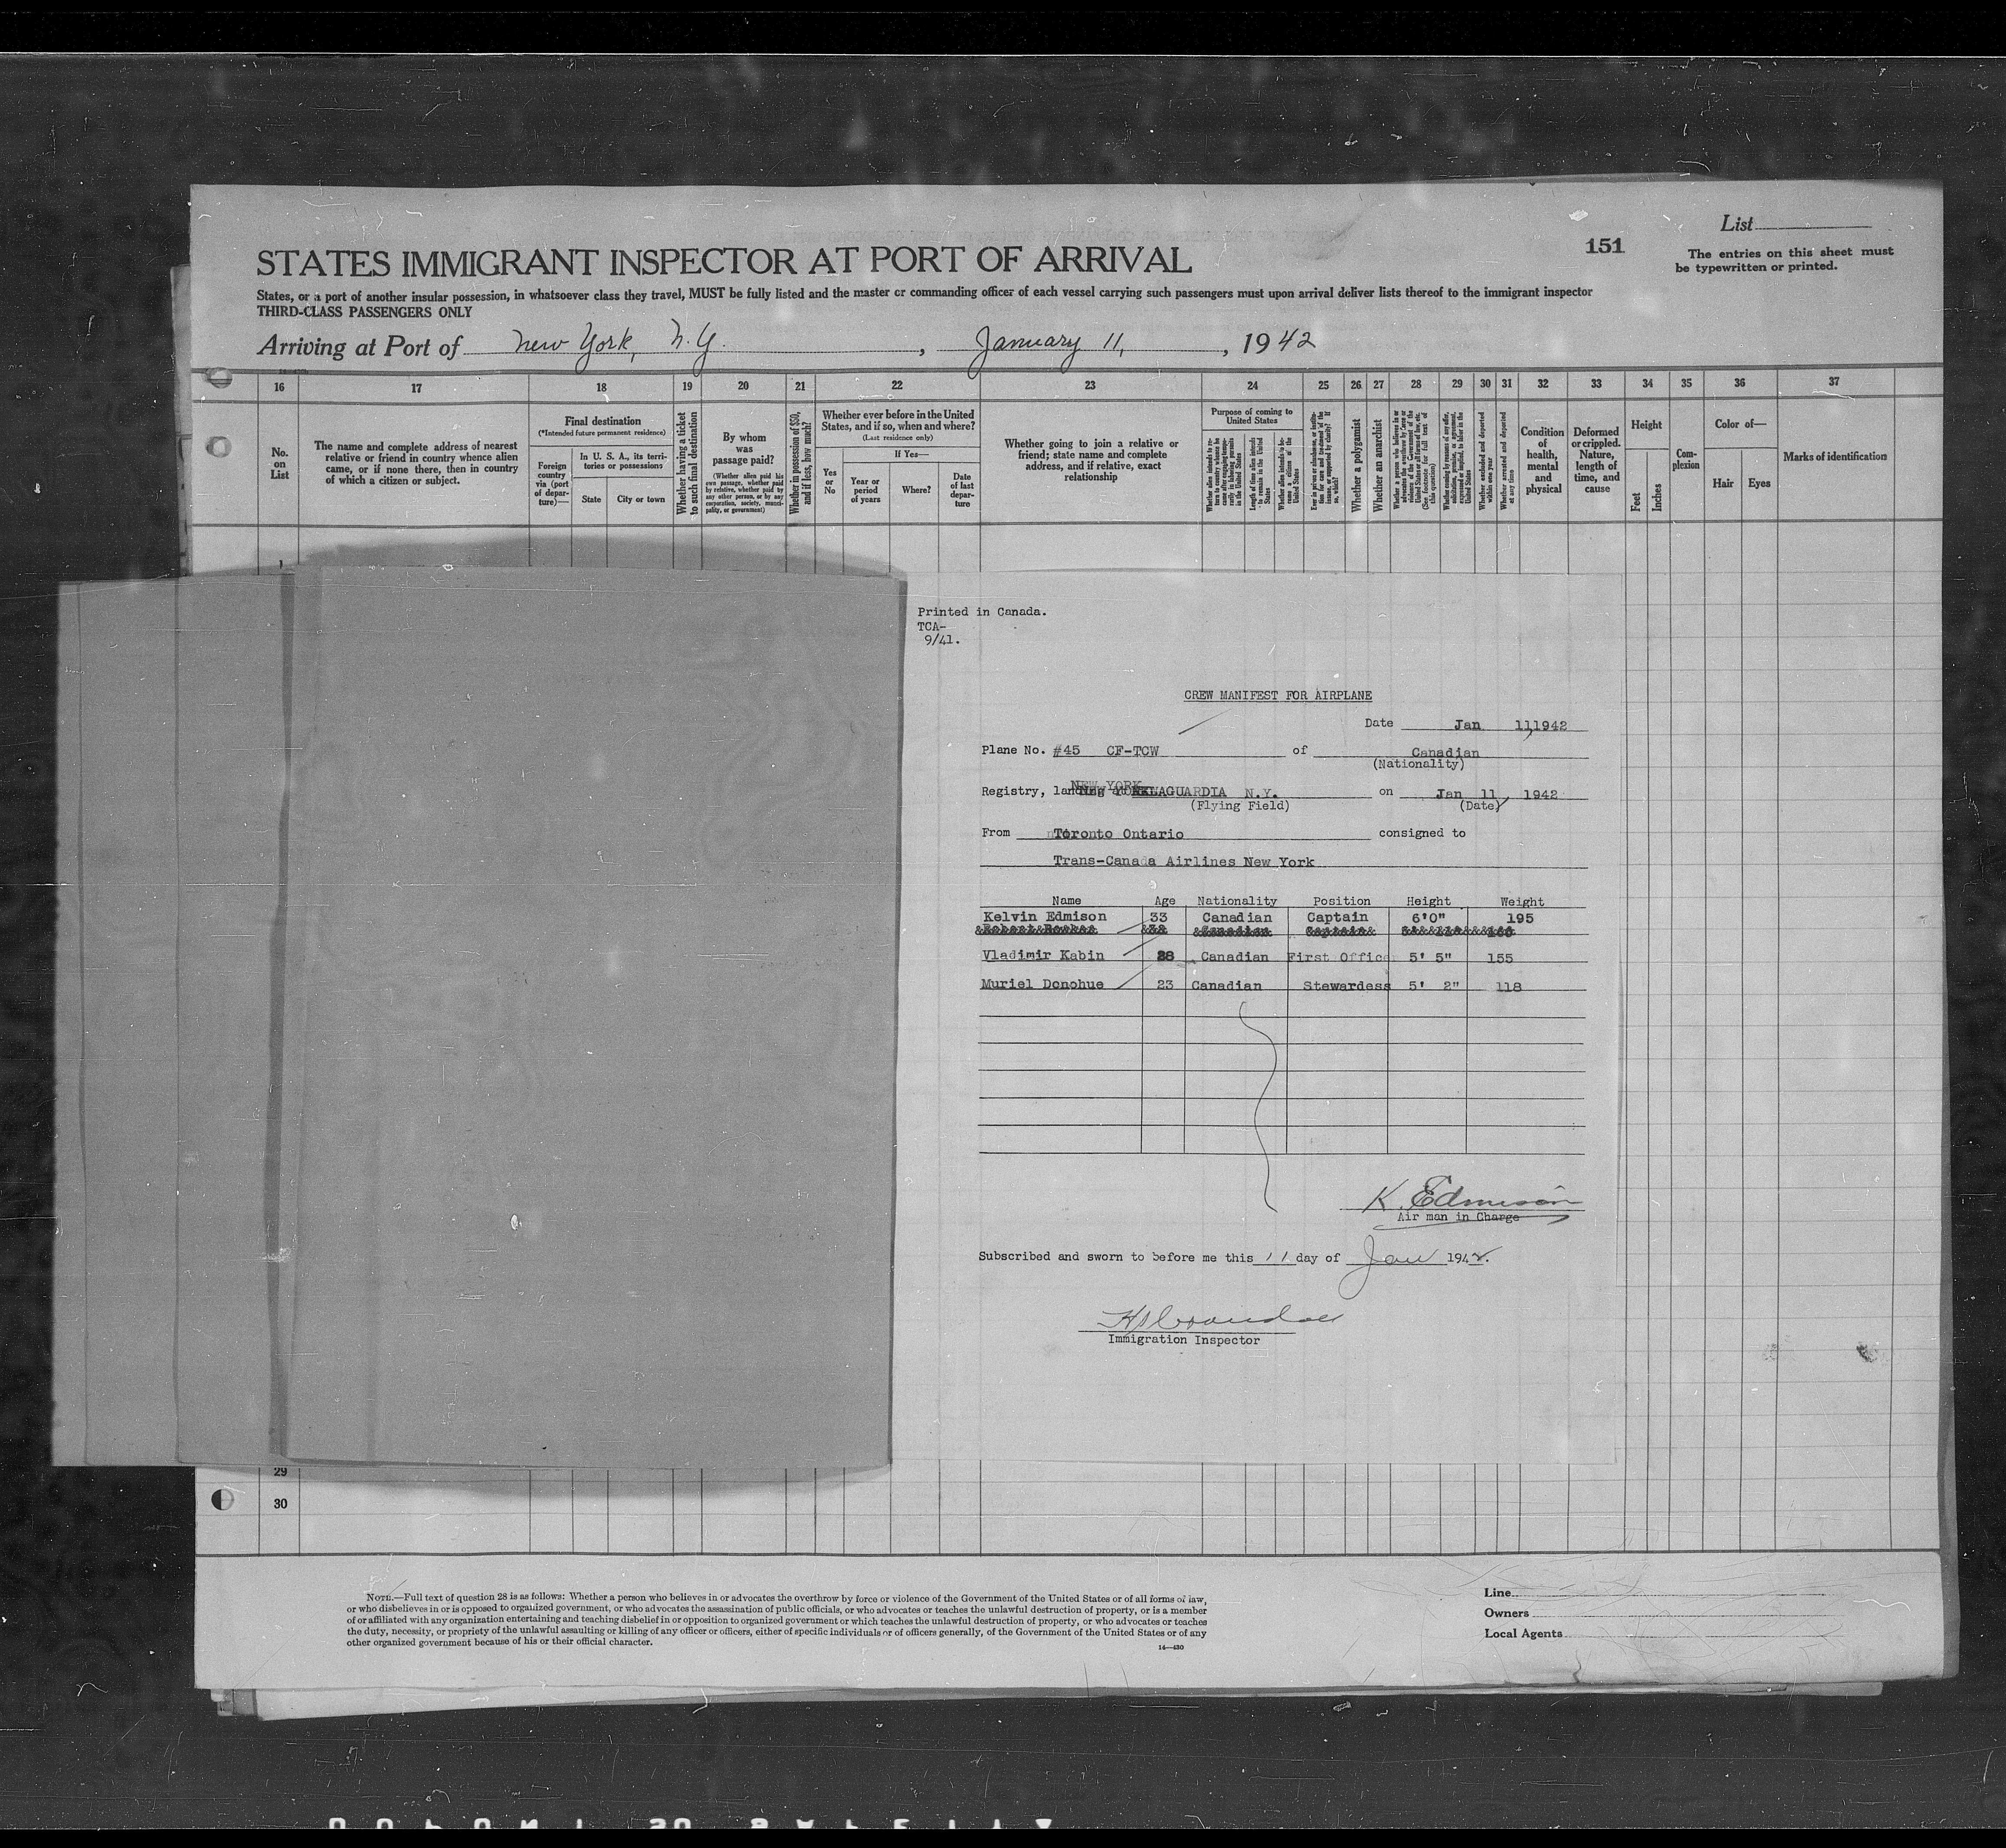 List
151
The entries on this sheet must
be typewritten or printed.
STATES IMMIGRANT INSPECTOR AT PORT OF ARRIVAL
States, or a port of another insular possession, in whatsoever class they travel, MUST be fully listed and the master or commanding officer of each vessel carrying such passengers must upon arrival deliver lists thereof to the immigrant inspector
THIRD-CLASS PASSENGERS ONLY
Arriving at Port of New York, N.Y. , January 11, , 1942
16 17 18 19 20 21 22 23 24 25 26 27 28 29 30 31 32 33 34 35 36 37
No.
on
List
The name and complete address of nearest
relative or friend in country whence alien
came, or if none there, then in country
of which a citizen or subject.
Final destination
(*Intended future permanent residence)
Foreign
country
via (port
of depar-
ture)—
In U. S. A., its terri-
tories or possessions
State City or town
Whether having a ticket
to such final destination
By whom
was
passage paid?
(Whether alien paid his
own passage, whether paid
by relative, whether paid by
any other person, or by any
corporation, society, munici-
pality, or government)
Whether in possession of $50,
and if less, how much?
Whether ever before in the United
States, and if so, when and where?
(Last residence only)
Yes
or
No
If Yes—
Year or
period
of years
Where?
Date
of last
depar-
ture
Whether going to join a relative or
friend; state name and complete
address, and if relative, exact
relationship
Purpose of coming to
United States
Length of time alien intends
to remain in the United
States
Whether a polygamist
Whether an anarchist
Whether arrested and deported
at any time
Condition
of
health,
mental
and
physical
Deformed
or crippled.
Nature,
length of
time, and
cause
Height
Feet
Inches
Com-
plexion
Color of—
Hair Eyes
Marks of identification
Printed in Canada.
TCA-
9/41.
CREW MANIFEST FOR AIRPLANE
Date Jan 11,1942
Plane No. #45 CF-TCW of Canadian
(Nationality)
NEW YORK
Registry, landing LAGUARDIA N.Y. on Jan 11, 1942
(Flying Field) (Date)
From Toronto Ontario consigned to
Trans-Canada Airlines New York
Name Age Nationality Position Height Weight
Kelvin Edmison 33 Canadian Captain 6'0" 195
Vladimir Kabin 28 Canadian First Office 5' 5" 155
Muriel Donohue 23 Canadian Stewardess 5' 2" 118
K. Edmison
Air man in Charge
Subscribed and sworn to before me this 11 day of Jan 1942.
Immigration Inspector
29
30
NOTE.—Full text of question 28 is as follows: Whether a person who believes in or advocates the overthrow by force or violence of the Government of the United States or of all forms of law,
or who disbelieves in or is opposed to organized government, or who advocates the assassination of public officials, or who advocates or teaches the unlawful destruction of property, or is a member
of or affiliated with any organization entertaining and teaching disbelief in or opposition to organized government or which teaches the unlawful destruction of property, or who advocates or teaches
the duty, necessity, or propriety of the unlawful assaulting or killing of any officer or officers, either of specific individuals or of officers generally, of the Government of the United States or of any
other organized government because of his or their official character.
14—430
Line
Owners
Local Agents